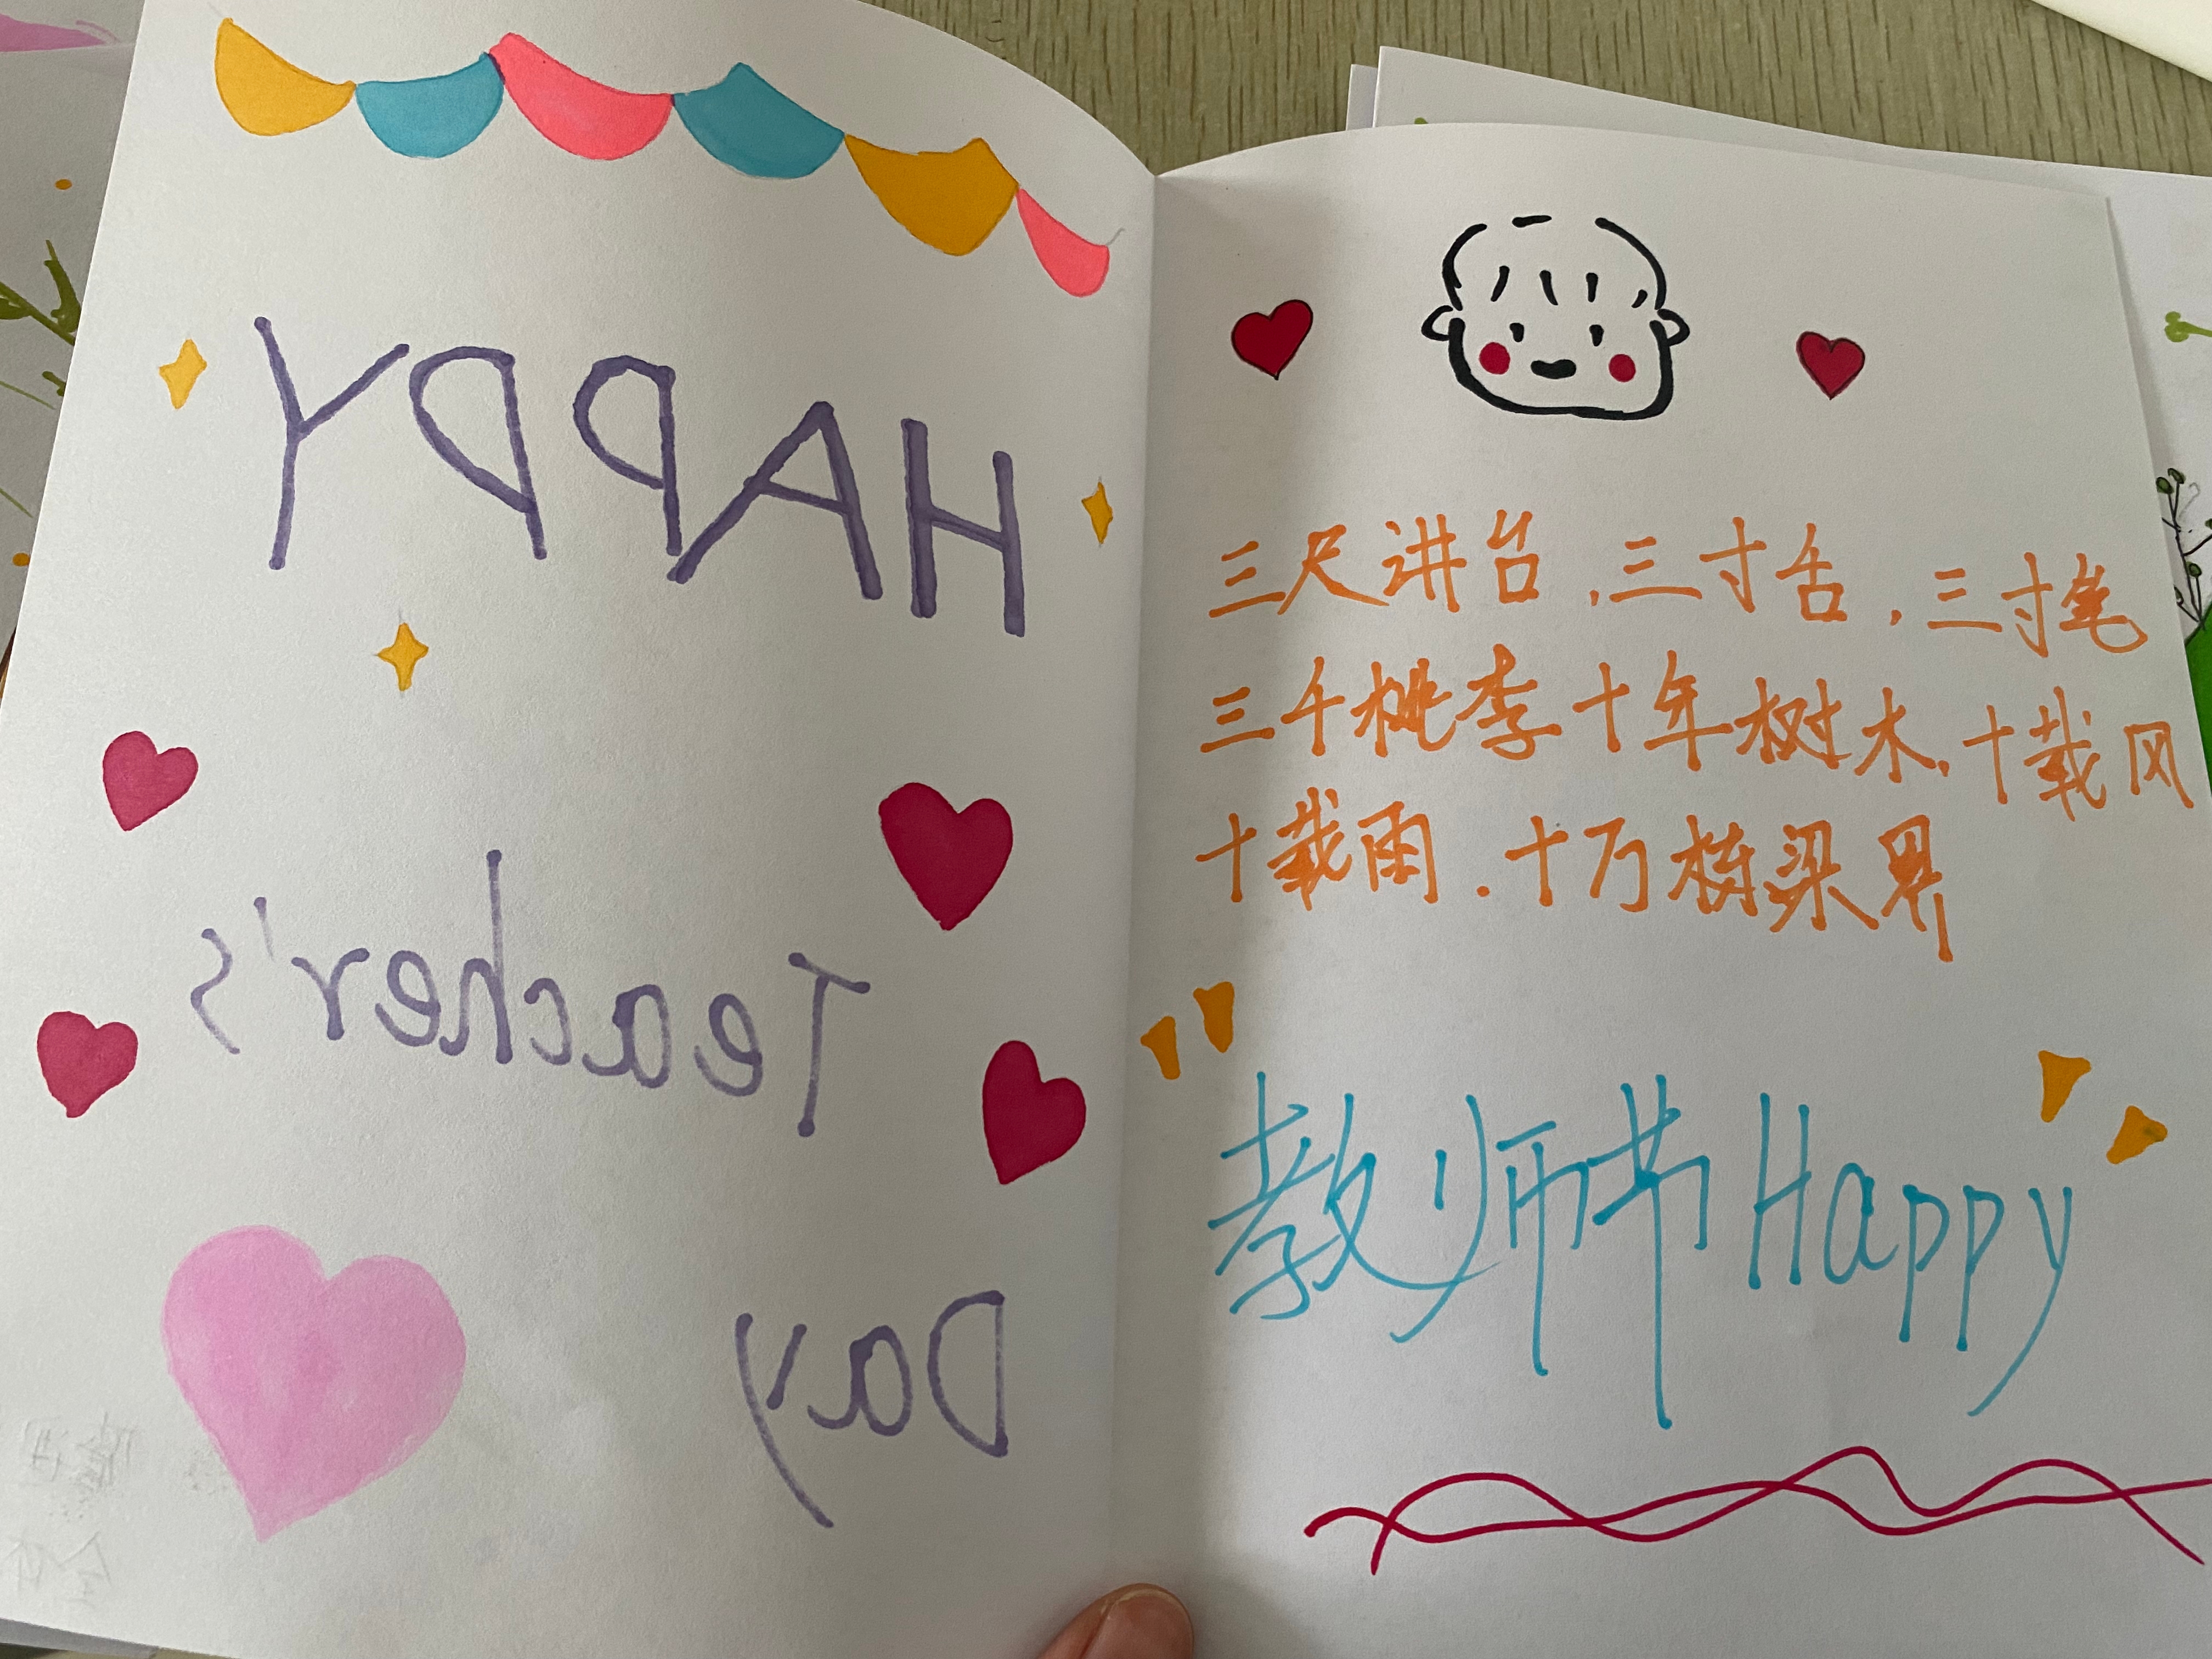 HAPPY
Teacher's
Day
三尺讲台.三寸舌.三寸笔
三千桃李十年树木.十载风
十载雨.十万栋梁
教师节Happy